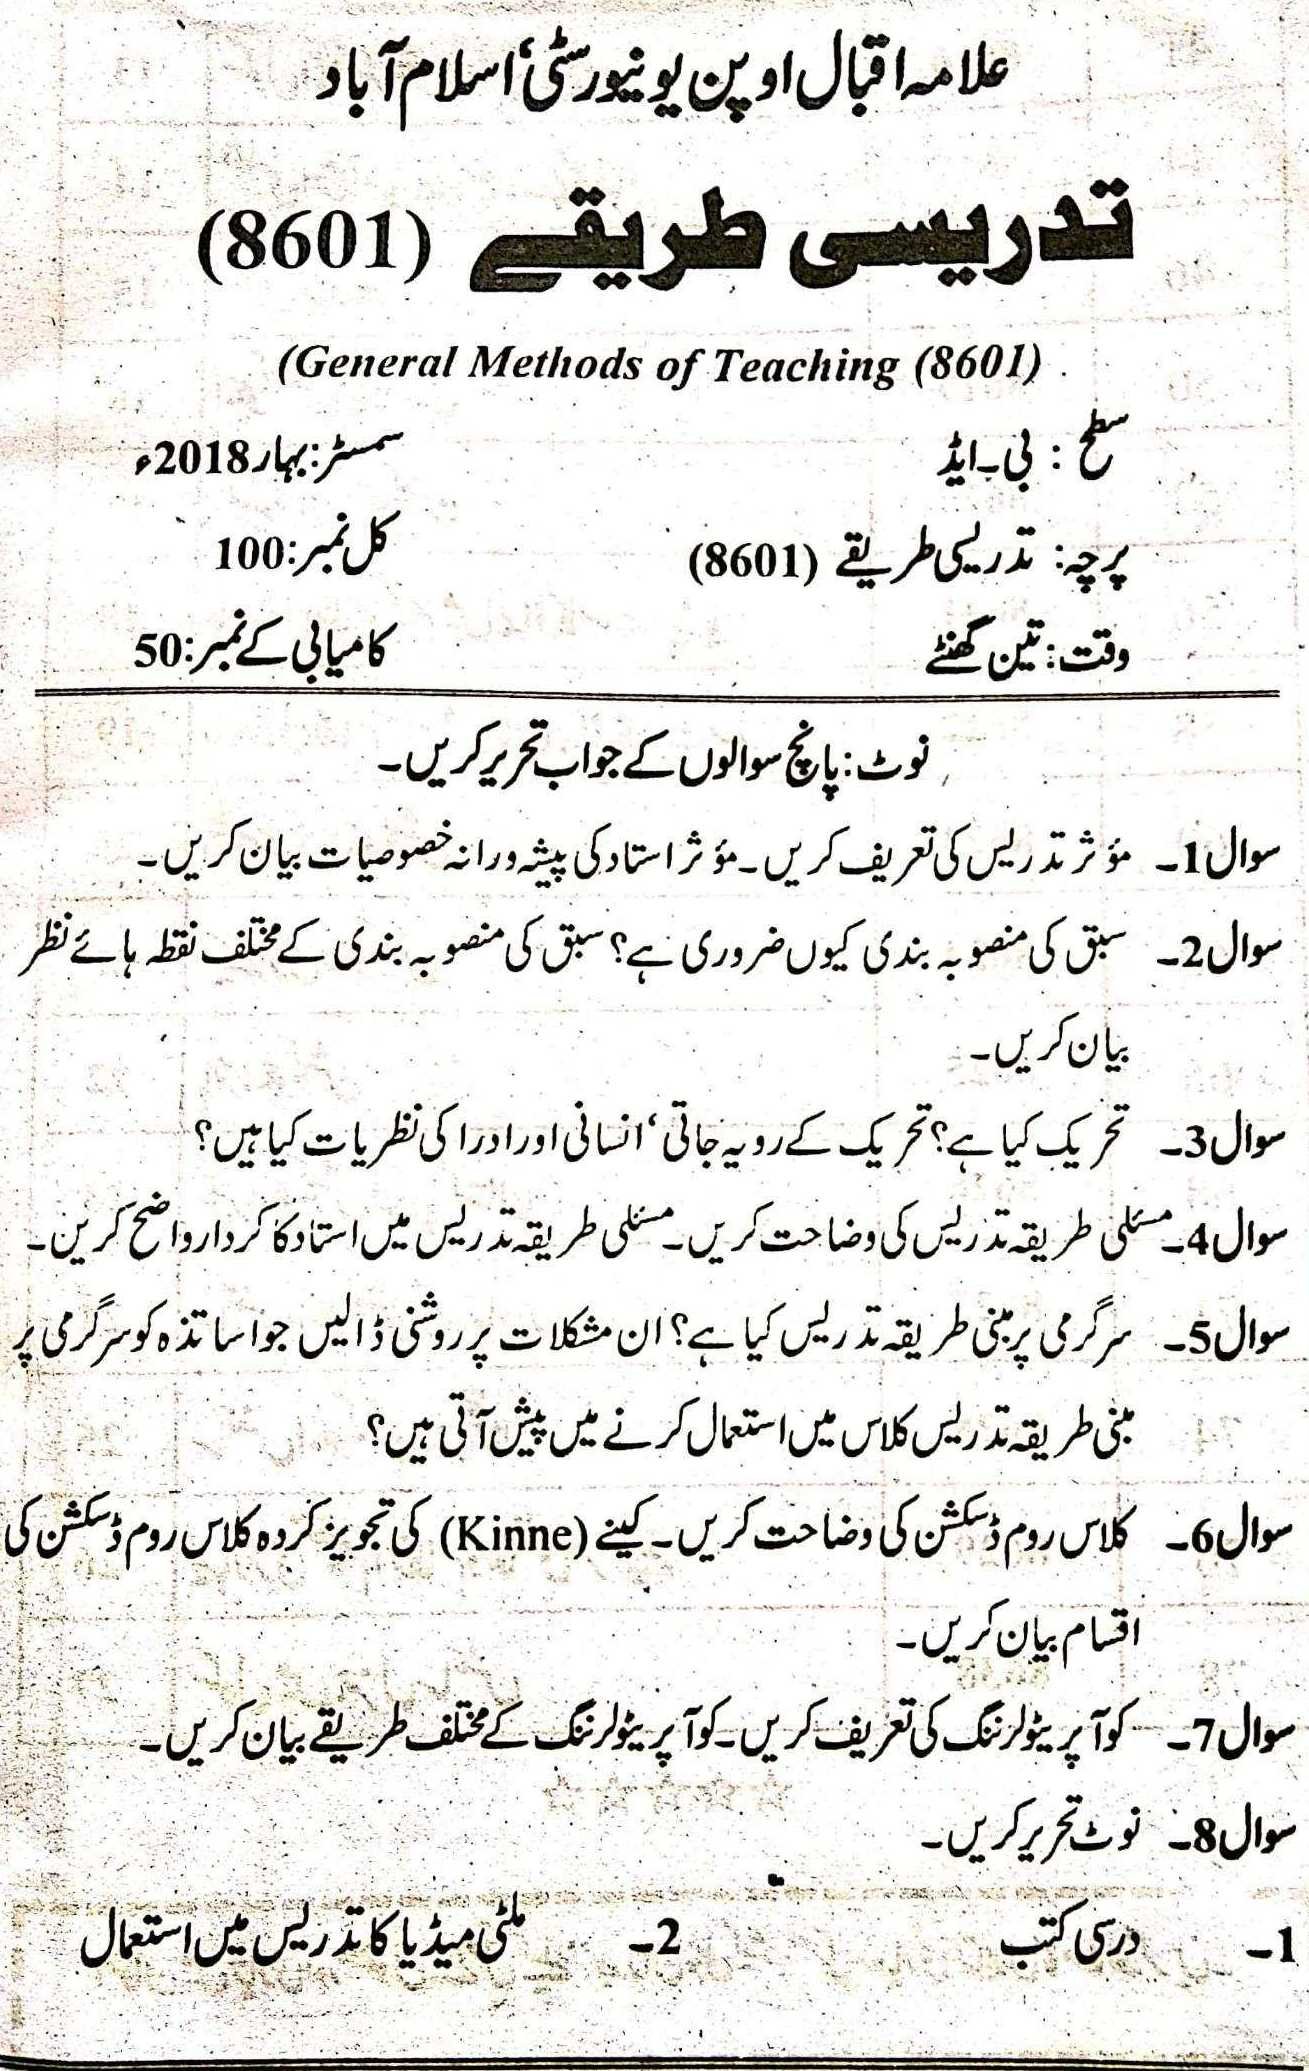 علامہ اقبال اوپن یونیورسٹی، اسلام آباد
تدریسی طریقے (8601)
(General Methods of Teaching (8601)
سطح : بی۔ایڈ سمسٹر: بہار 2018ء
پرچہ: تدریسی طریقے (8601) کل نمبر: 100
وقت: تین گھنٹے کامیابی کے نمبر: 50
نوٹ: پانچ سوالوں کے جواب تحریر کریں۔
سوال 1۔ مؤثر تدریس کی تعریف کریں۔ مؤثر استاد کی پیشہ ورانہ خصوصیات بیان کریں۔
سوال 2۔ سبق کی منصوبہ بندی کیوں ضروری ہے؟ سبق کی منصوبہ بندی کے مختلف نقطہ ہائے نظر
بیان کریں۔
سوال 3۔ تحریک کیا ہے؟ تحریک کے رویہ جاتی، انسانی اور ادراکی نظریات کیا ہیں؟
سوال 4۔ مسئلی طریقہ تدریس کی وضاحت کریں۔ مسئلی طریقہ تدریس میں استاد کا کردار واضح کریں۔
سوال 5۔ سرگرمی پر مبنی طریقہ تدریس کیا ہے؟ ان مشکلات پر روشنی ڈالیں جو اساتذہ کو سرگرمی پر
مبنی طریقہ تدریس کلاس میں استعمال کرنے میں پیش آتی ہیں؟
سوال 6۔ کلاس روم ڈسکشن کی وضاحت کریں۔ کینے (Kinne) کی تجویز کردہ کلاس روم ڈسکشن کی
اقسام بیان کریں۔
سوال 7۔ کوآپریٹو لرننگ کی تعریف کریں۔ کوآپریٹو لرننگ کے مختلف طریقے بیان کریں۔
سوال 8۔ نوٹ تحریر کریں۔
1۔ درسی کتب 2۔ ملٹی میڈیا کا تدریس میں استعمال